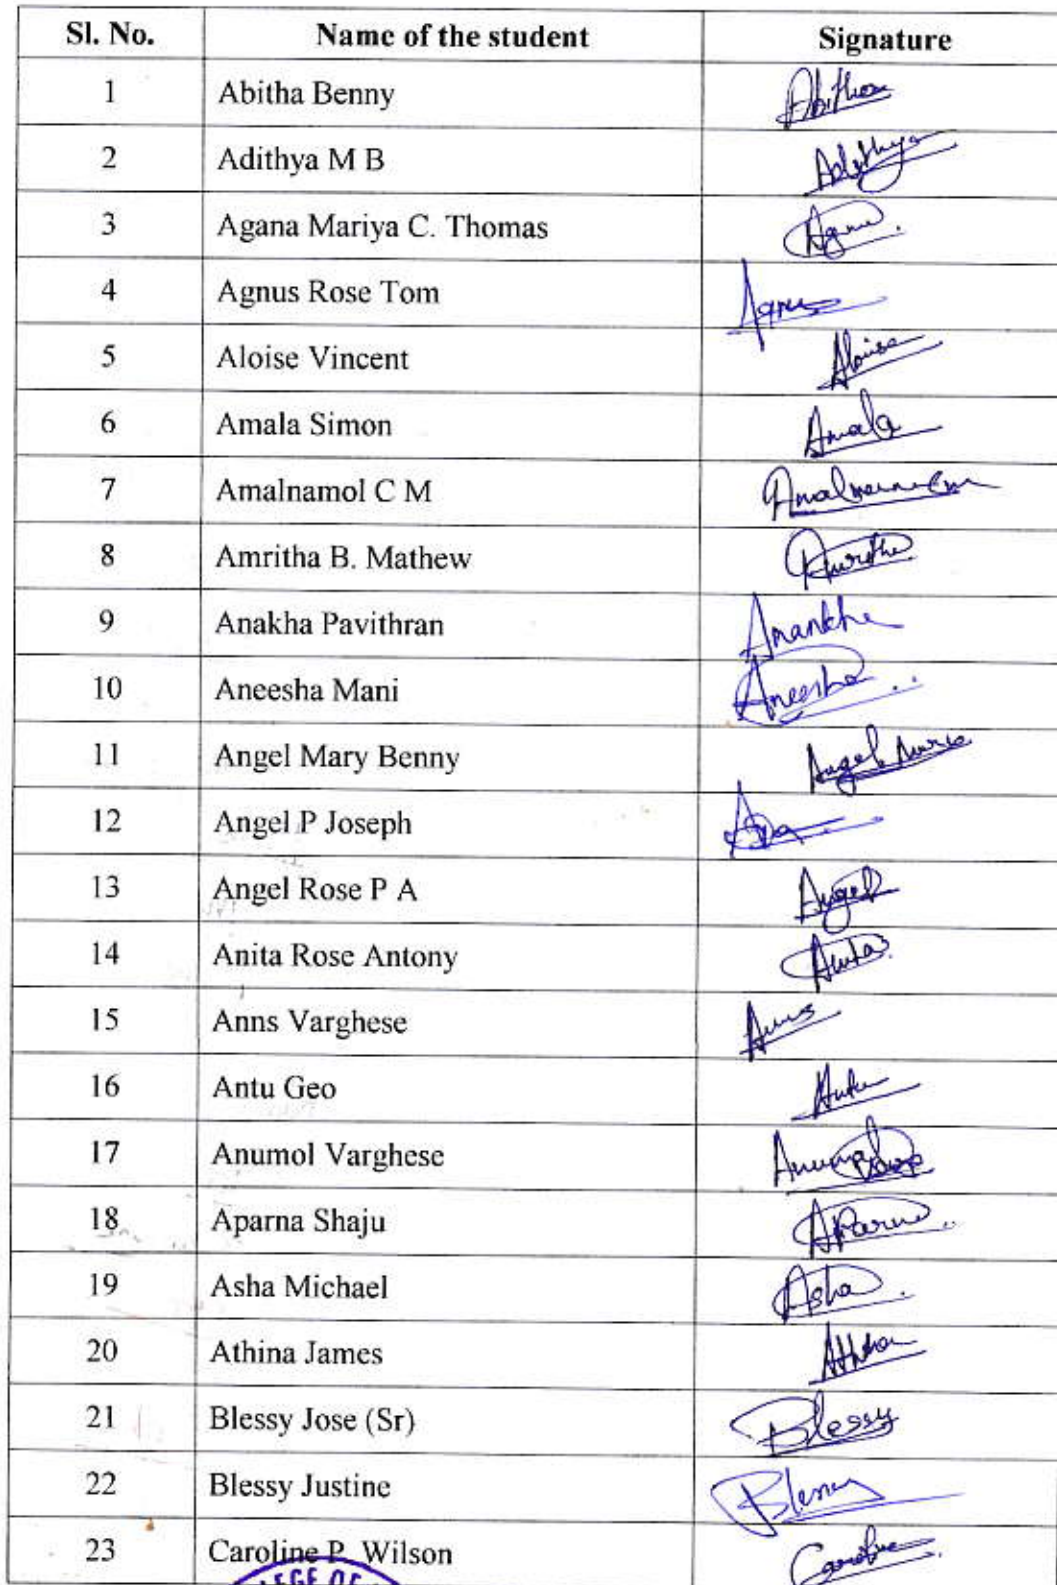 Sl. No. Name of the student Signature
1 Abitha Benny Abitha
2 Adithya M B Adithya
3 Agana Mariya C. Thomas
4 Agnus Rose Tom Agnus
5 Aloise Vincent Aloise
6 Amala Simon Amala
7 Amalnamol C M
8 Amritha B. Mathew
9 Anakha Pavithran
10 Aneesha Mani Aneesha
11 Angel Mary Benny Angel
12 Angel P Joseph
13 Angel Rose P A Angel
14 Anita Rose Antony Anita
15 Anns Varghese Anns
16 Antu Geo Antu
17 Anumol Varghese
18 Aparna Shaju
19 Asha Michael Asha
20 Athina James
21 Blessy Jose (Sr) Blessy
22 Blessy Justine Blessy
23 Caroline P. Wilson Caroline
EGE OF